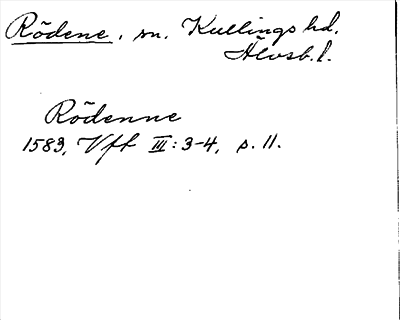 Rödene, sn. Kullings hd.
Älvsb. l.
Rödenne
1583, Vft III: 3-4, s. 11.